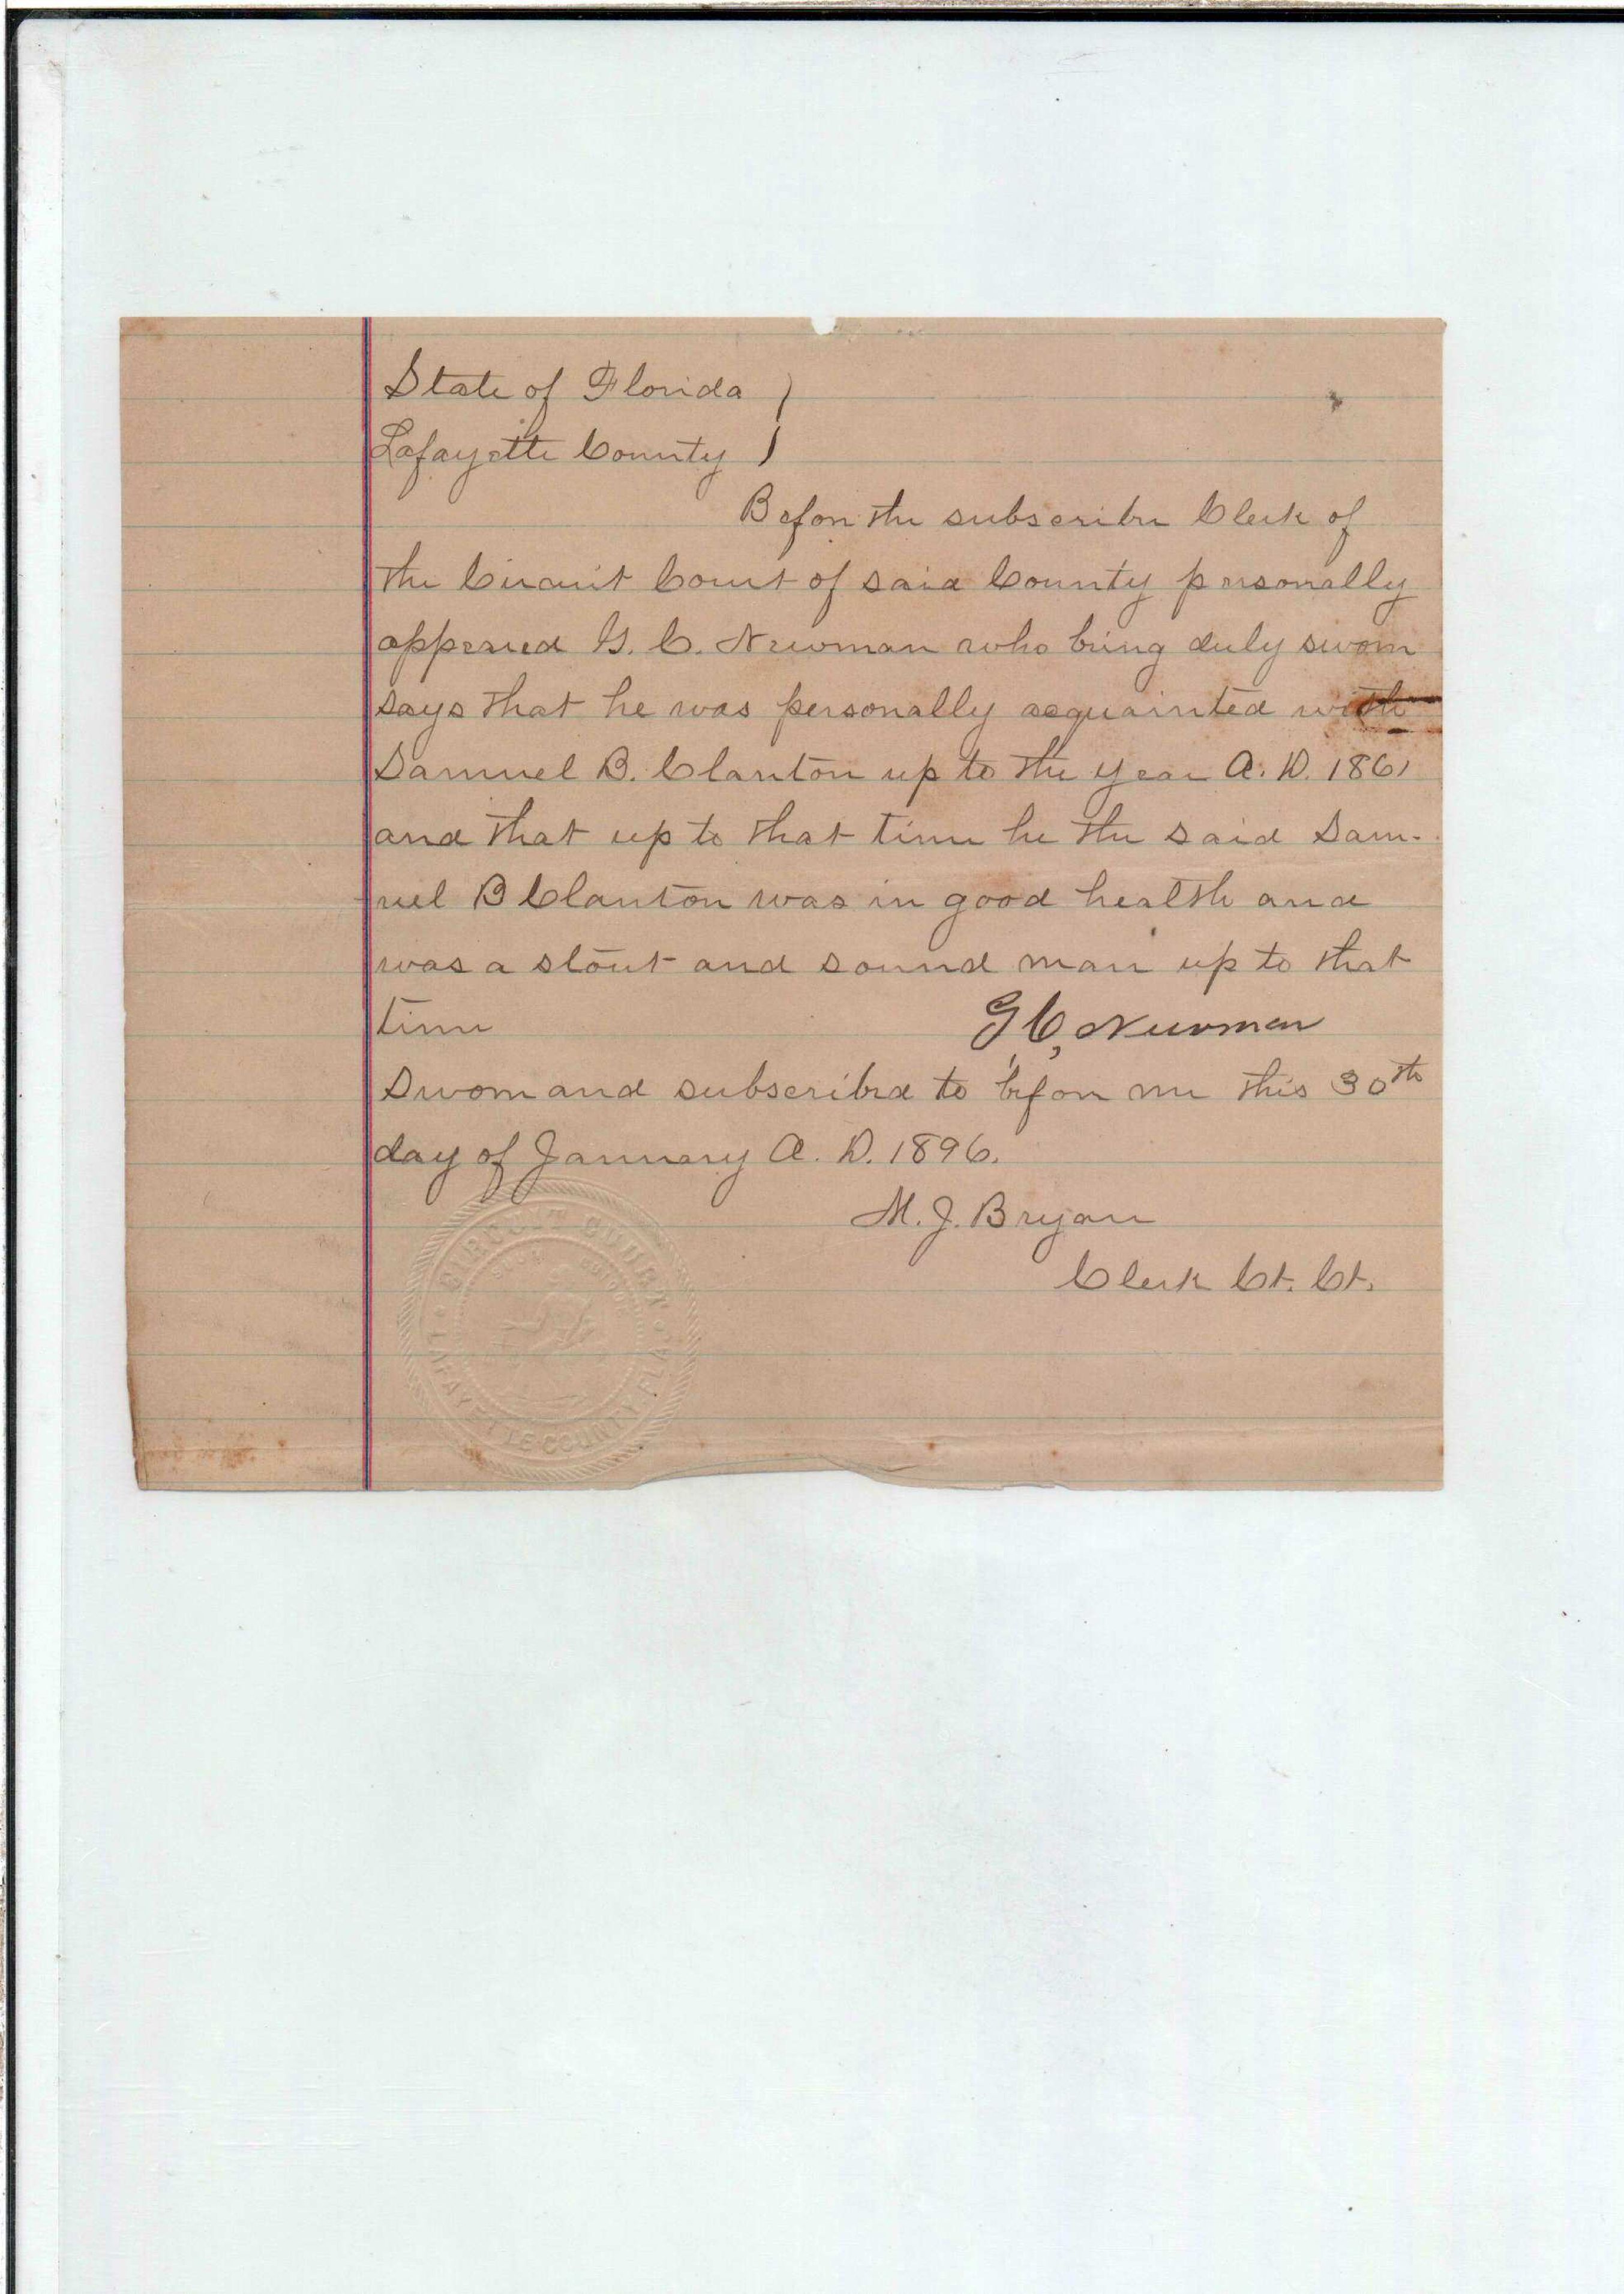 State of Florida )
Lafayette County )
Before the subscriber Clerk of
the Circuit Court of said County personally
appeared G. C. Newman who being duly sworn
says that he was personally acquainted with
Samuel B. Clanton up to the year A. D. 1861
and that up to that time he the said Sam-
uel B Clanton was in good health and
was a stout and sound man up to that
time G C, Newman
Sworn and subscribed to before me this 30th
day of January A. D. 1896.
M. J. Bryan
Clerk Ct. Ct.
CIRCUIT COURT
LAFAYETTE COUNTY FLA